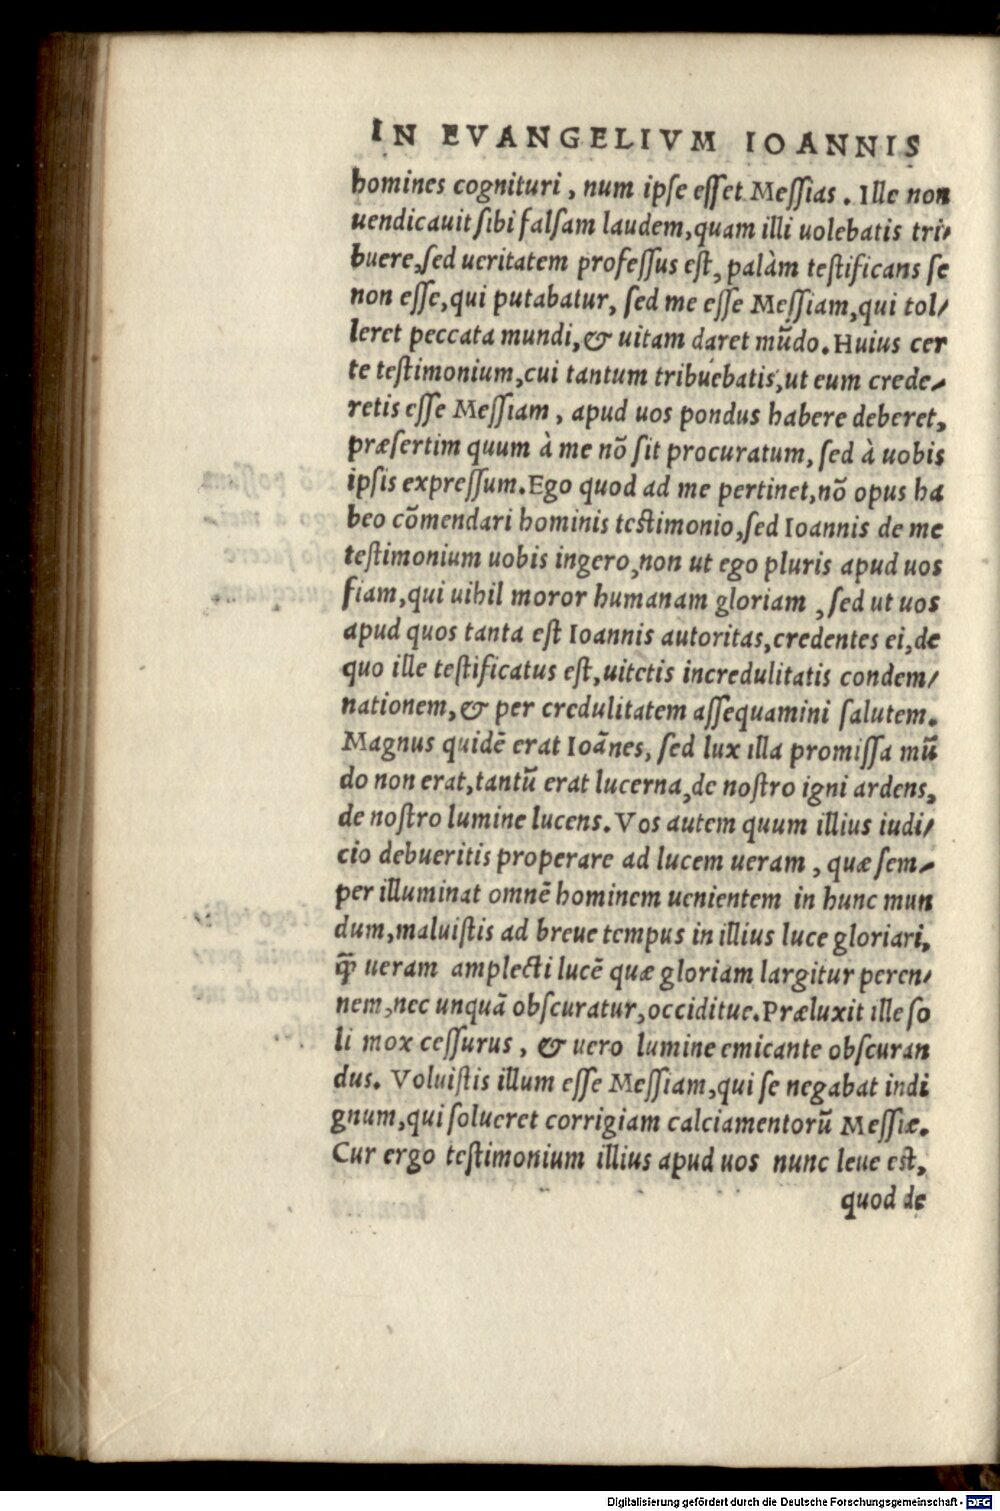 IN EVANGELIVM IOANNIS
homines cognituri, num ipſe eſſet Meſſias. Ille non
uendicauit ſibi falſam laudem, quam illi uolebatis tri-
buere, ſed ueritatem profeſſus eſt, palàm teſtificans ſe
non eſſe, qui putabatur, ſed me eſſe Meſſiam, qui tol-
leret peccata mundi, & uitam daret mũdo. Huius cer
te teſtimonium, cui tantum tribuebatis, ut eum crede-
retis eſſe Meſſiam, apud uos pondus habere deberet,
præſertim quum à me nõ ſit procuratum, ſed à uobis
ipſis expreſſum. Ego quod ad me pertinet, nõ opus ha
beo cõmendari hominis teſtimonio, ſed Ioannis de me
teſtimonium uobis ingero, non ut ego pluris apud uos
fiam, qui uihil moror humanam gloriam, ſed ut uos
apud quos tanta eſt Ioannis autoritas, credentes ei, de
quo ille teſtificatus eſt, uitetis incredulitatis condem-
nationem, & per credulitatem aſſequamini ſalutem.
Magnus quidẽ erat Ioãnes, ſed lux illa promiſſa mũ
do non erat, tantũ erat lucerna, de noſtro igni ardens,
de noſtro lumine lucens. Vos autem quum illius iudi-
cio debueritis properare ad lucem ueram, quæ ſem-
per illuminat omnẽ hominem uenientem in hunc mun
dum, maluiſtis ad breue tempus in illius luce gloriari,
q̃ ueram amplecti lucẽ quæ gloriam largitur peren-
nem, nec unquã obſcuratur, occiditue. Præluxit ille ſo
li mox ceſſurus, & uero lumine emicante obſcuran
dus. Voluiſtis illum eſſe Meſſiam, qui ſe negabat indi
gnum, qui ſolueret corrigiam calciamentorũ Meſſiæ.
Cur ergo teſtimonium illius apud uos nunc leue eſt,
quod de
Digitalisierung gefördert durch die Deutsche Forschungsgemeinschaft - DFG